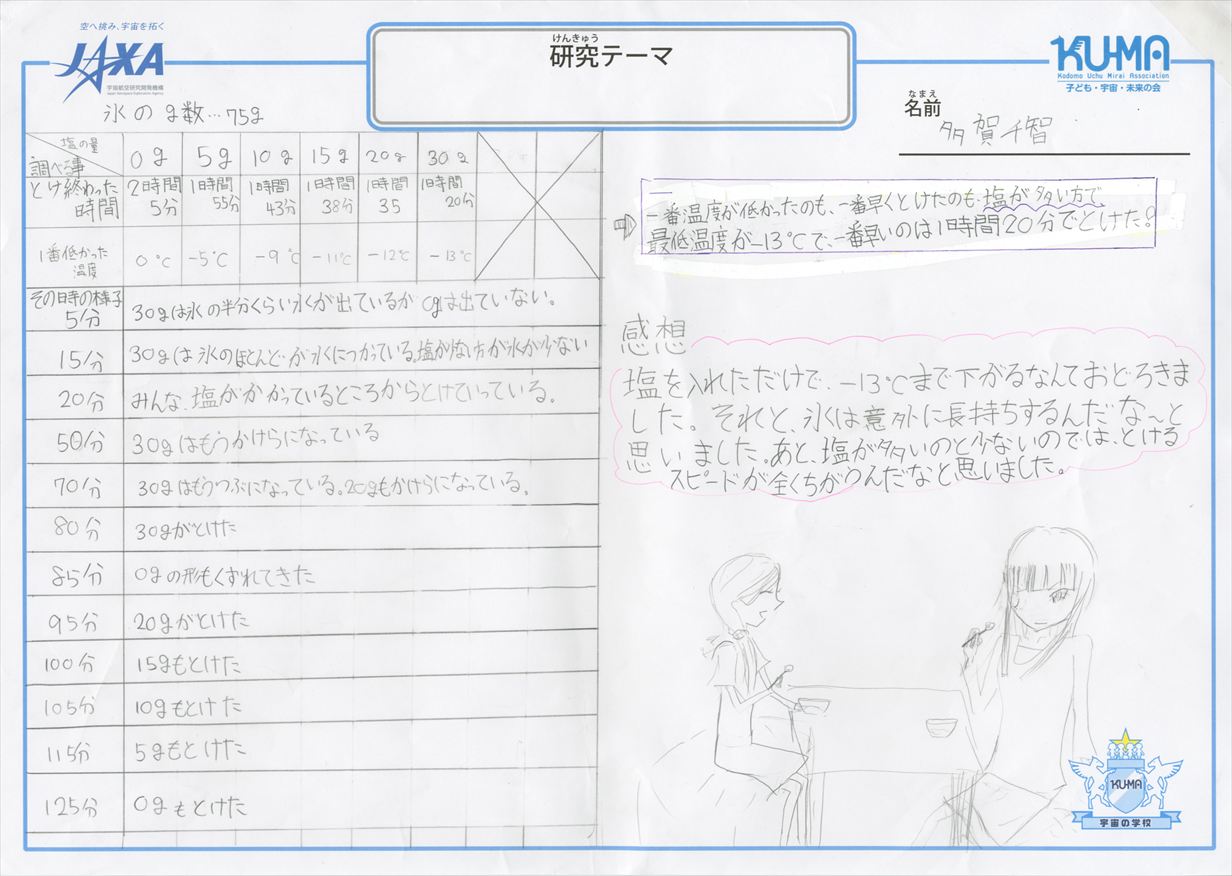 空へ挑み、宇宙を拓く
JAXA
宇宙航空研究開発機構
Japan Aerospace Exploration Agency
けんきゅう
研究テーマ
KU-MA
Kodomo Uchu Mirai Association
子ども・宇宙・未来の会
なまえ
名前
多賀千智
氷のg数…75g
塩の量
調べる事
0g 5g 10g 15g 20g 30g
とけ終わった時間
2時間5分 1時間55分 1時間43分 1時間38分 1時間35 1時間20分
1番低かった温度
0℃ -5℃ -9℃ -11℃ -12℃ -13℃
その日時の様子
5分 30gは氷の半分くらい水が出ているが0gは出ていない。
15分 30gは氷のほとんどが水につかっている。塩が少ない方が水が少ない
20分 みんな、塩がかかっているところからとけていっている。
50分 30gはもうかけらになっている
70分 30gはもうつぶになっている。20gもかけらになっている。
80分 30gがとけた
85分 0gの形もくずれてきた
95分 20gがとけた
100分 15gもとけた
105分 10gもとけた
115分 5gもとけた
125分 0gもとけた
⇒一番温度が低かったのも、一番早くとけたのも塩が多い方で、
最低温度が-13℃で、一番早いのは1時間20分でとけた。
感想
塩を入れただけで、-13℃まで下がるなんておどろきま
した。それと、氷は意外に長持ちするんだな～と
思いました。あと、塩が多いのと少ないのでは、とける
スピードが全くちがうんだなと思いました。
KU-MA
宇宙の学校